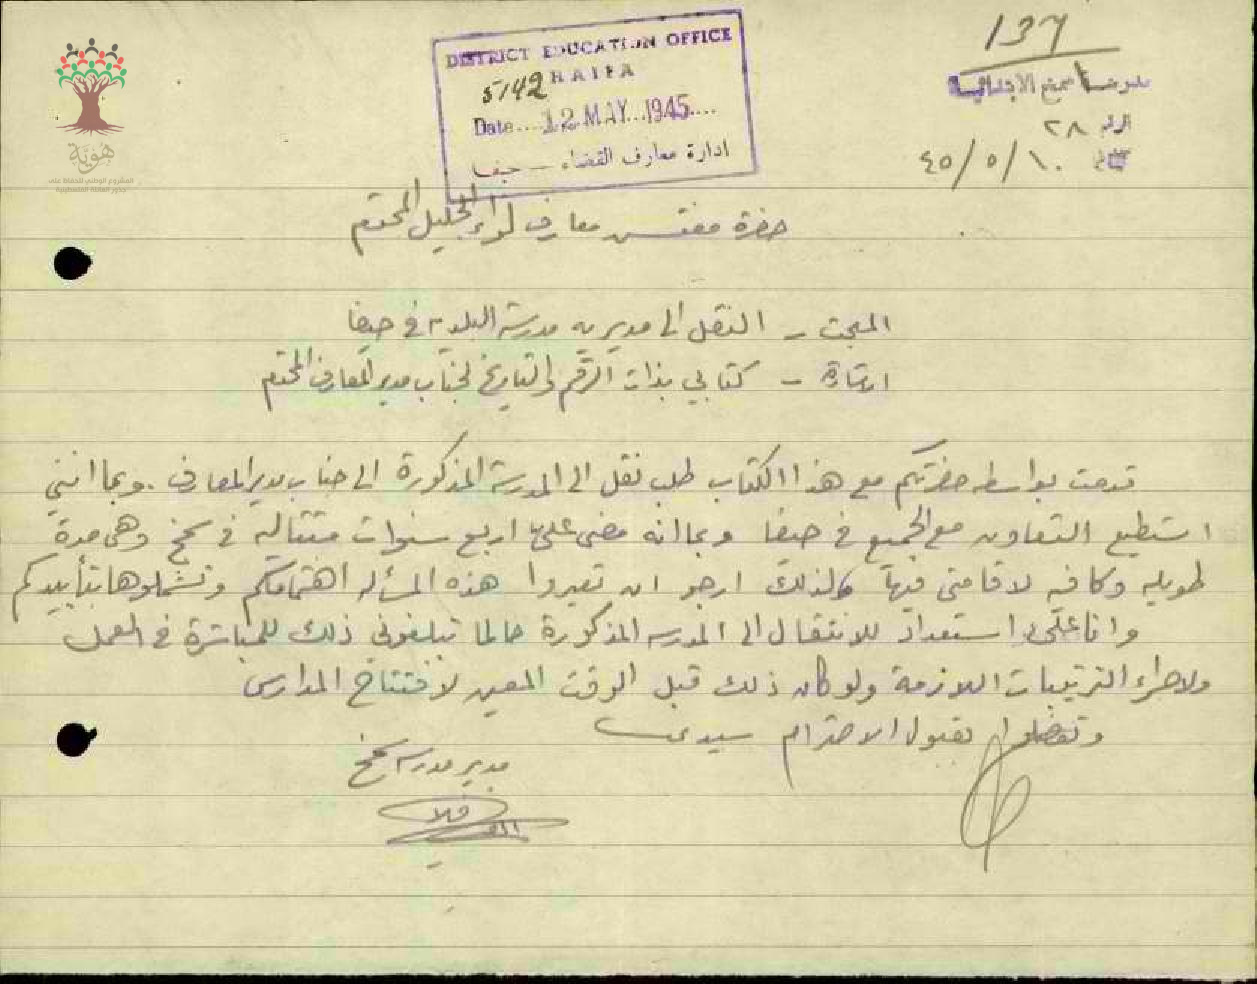 137
DISTRICT EDUCATION OFFICE
HAIFA
5142
Date....12 MAY 1945....
ادارة معارف القضاء ـ حيفا
مدرسة سمخ الابتدائية
الرقم ٢٨
٤٥/٥/١٠
هوية
المشروع الوطني للحفاظ على
جذور العائلة الفلسطينية
حضرة مفتش معارف لواء الجليل المحترم
المبحث – النقل الى مديرية مدرسة البلدية في حيفا
اشارة – كتابي بذات الرقم والتاريخ لجناب مدير المعارف المحترم
قدمت بواسطة حضرتكم مع هذا الكتاب طلب نقل الى المدرسة المذكورة الى جناب مدير المعارف. وبما انني
استطيع التعاون مع الجميع في حيفا وبما انه مضى علي اربع سنوات متتالية في سمخ وهي مدة
طويلة وكافية لاقامتي فيها لذلك ارجو ان تعيروا هذه المسألة اهتمامكم وتشملوها بتأييدكم
وانا على استعداد للانتقال الى المدرسة المذكورة حالما تبلغوني ذلك للمباشرة في العمل
ولاجراء الترتيبات اللازمة ولو كان ذلك قبل الوقت المعين لافتتاح المدارس
وتفضلوا بقبول الاحترام سيدي
مدير مدرسة سمخ